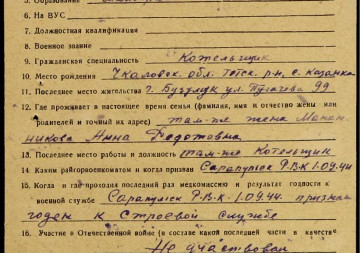 5. Образование
6. На ВУС
7. Должностная квалификация
8. Военное звание
9. Гражданская специальность Котельщик
10. Место рождения Чкаловск. обл. Тотск. р-н, с. Казанка
11. Последнее место жительства г. Бузулук ул. Пугачева 99
12. Где проживает в настоящее время семья (фамилия, имя и отчество жены или
родителей и точный их адрес) там-же жена Мажен
никова Анна Федотовна
13. Последнее место работы и должность там-же Котельщик
14. Каким райгорвоенкоматом и когда призван Сарапулск РВК 1.09.44
15. Когда и где проходил последний раз медкомиссию и результат годности к
военной службе Сарапулск Р.В.К. 1.09.44. признан
годен к строевой службе
16. Участие в Отечественной войне (в составе какой последней части и в качестве
Не участвовал